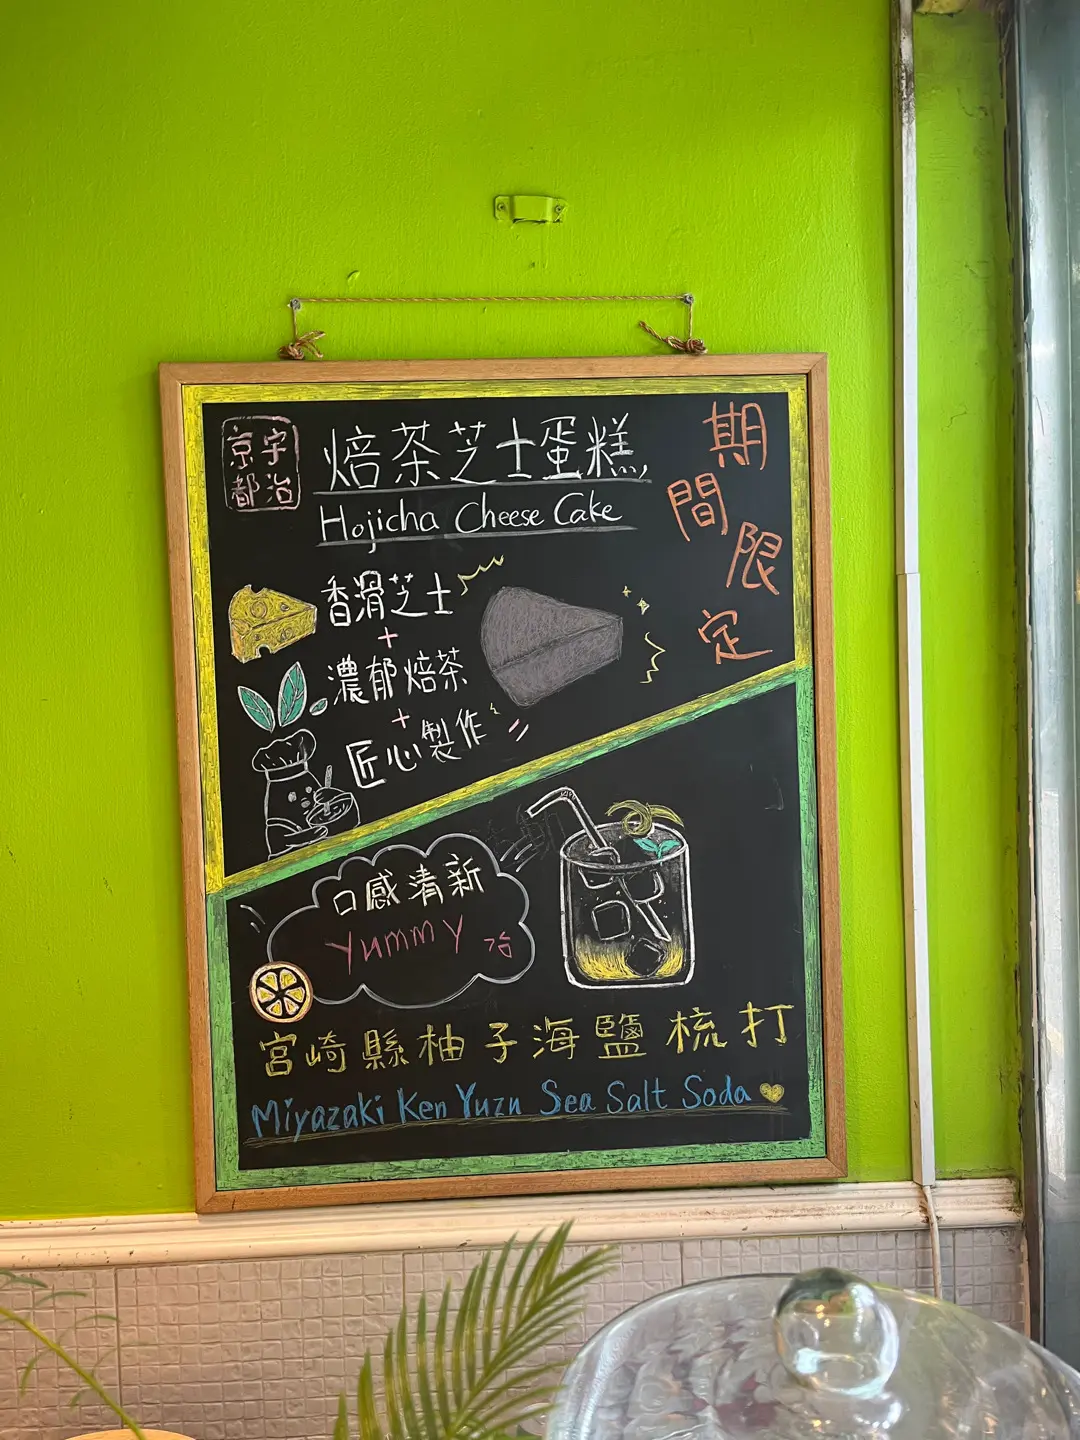 宇治
京都
焙茶芝士蛋糕
Hojicha Cheese Cake
期間限定
香滑芝士
+
濃郁焙茶
+
匠心製作
口感清新
Yummy
宮崎縣柚子海鹽梳打
Miyazaki Ken Yuzu Sea Salt Soda